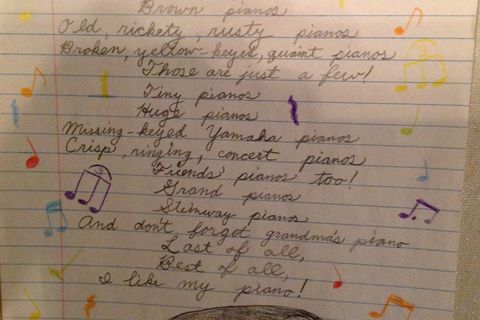 Brown pianos
Old, rickety, rusty pianos
Broken, yellow-keyed, quaint pianos
Those are just a few!
Tiny pianos
Huge pianos
Missing-keyed Yamaha pianos
Crisp, ringing, concert pianos
Friends' pianos too!
Grand pianos
Steinway pianos
And don't forgot grandma's piano
Last of all,
Best of all,
I like my piano!